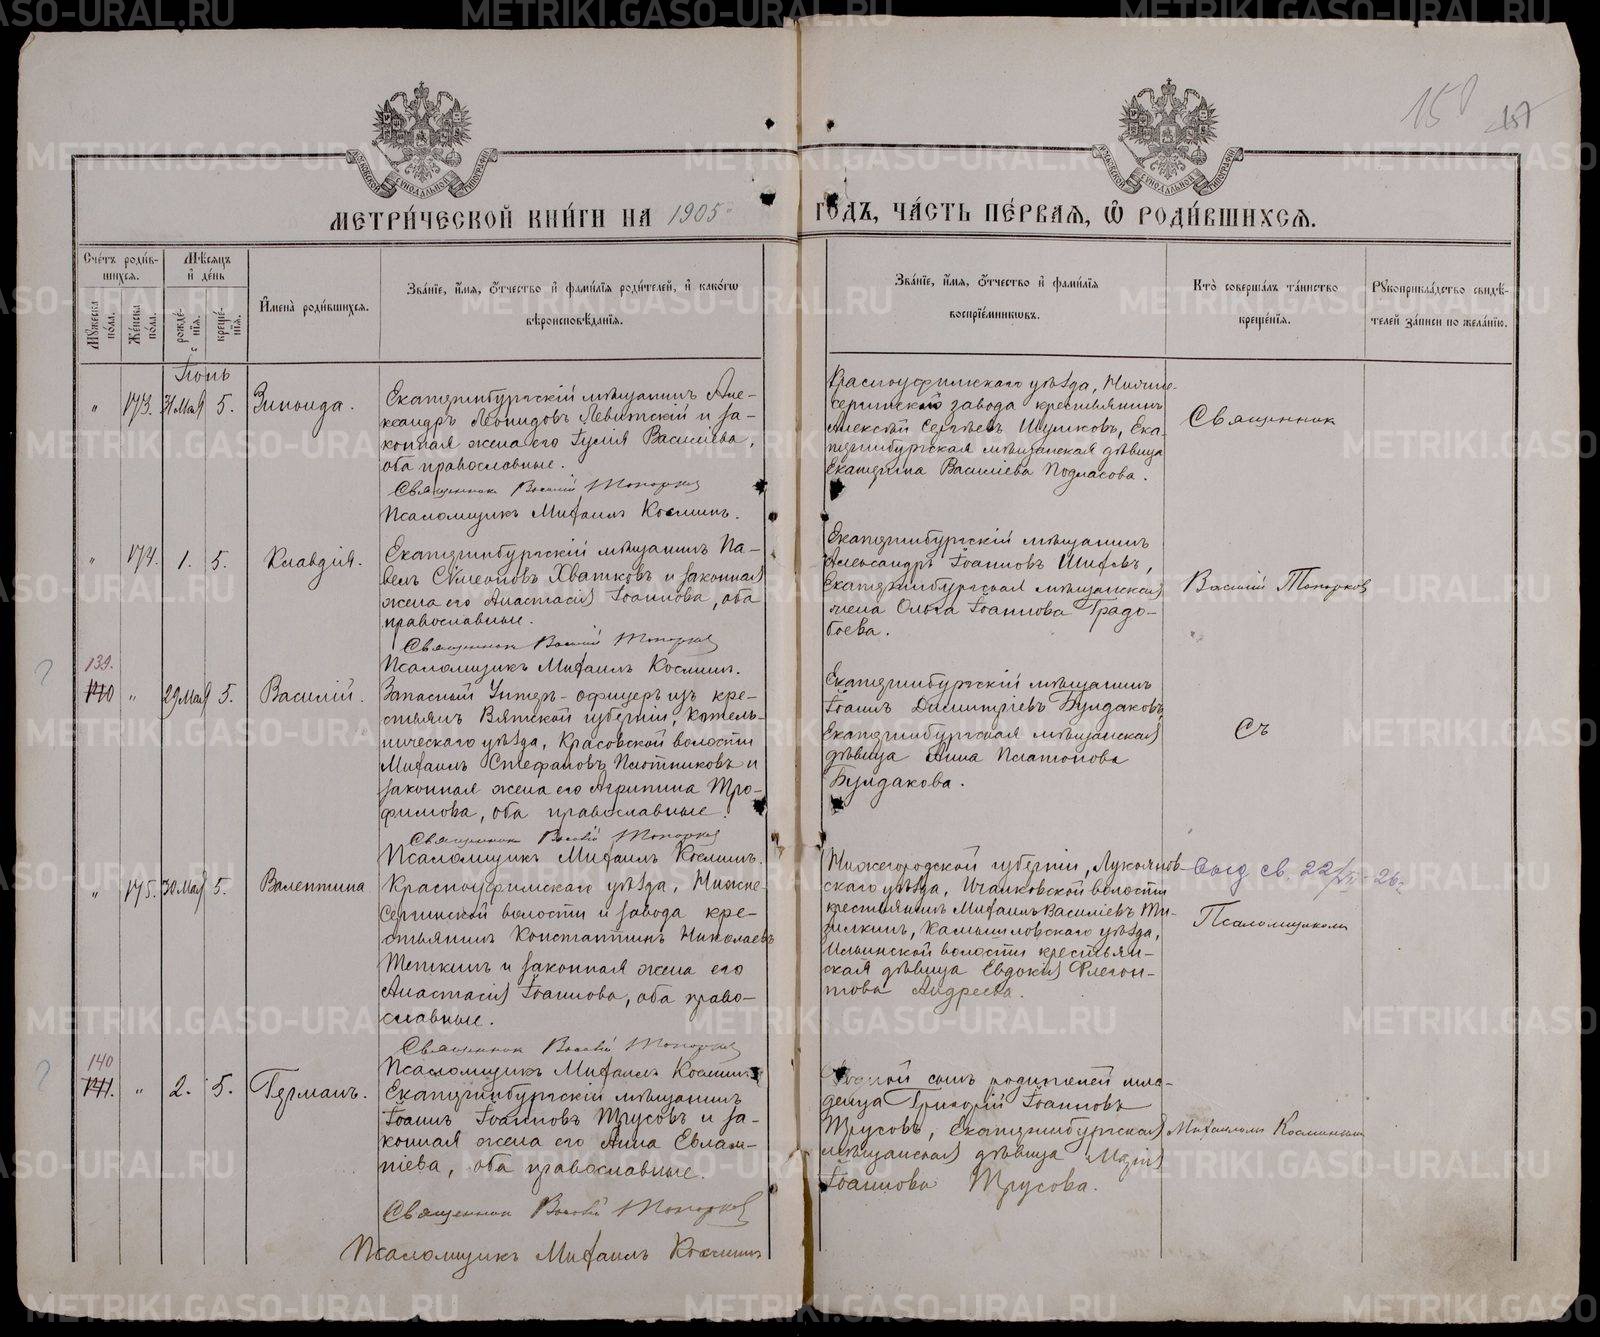 METRIKI.GASO-URAL.RU
МОСКОВСКОЙ СѴНОДАЛЬНОЙ ТИПОГРАФІИ
МОСКОВСКОЙ СѴНОДАЛЬНОЙ ТИПОГРАФІИ
157
МЕТРИ́ЧЕСКОЙ КНИ́ГИ НА 1905 ГОДЪ, ЧА́СТЬ ПЕ́РВАЯ, Ѡ РОДИ́ВШИХСЯ.
Сче́тъ роди́в-
шихся.
Мѣ́сяцъ
и де́нь
Мꙋ́жеска по́ла.
Же́нска по́ла.
рожде́-
нія.
креще́-
нія.
Имена̀ роди́вшихся.
Зва́ніе, и́мя, ѻ́тчество и фами́лія роди́телей, и како́гѡ
вѣроисповѣ́данія.
Зва́ніе, и́мя, ѻ́тчество и фами́лія
воспріе́мниковъ.
Кто̀ соверша́лъ та́инство
креще́нія.
Рꙋкоприкла́дство свидѣ́-
телей за́писи по жела́нію.
Іюнь
"
173.
31 Мая
5.
Зинаида.
Екатеринбургскій мѣщанинъ Але-
ксандръ Леонидовъ Левитскій и за-
конная жена его Юлія Васильева,
оба православные.
Священник Василій Топорков
Псаломщикъ Михаилъ Космин.
Красноуфимскаго уѣзда, Нижне-
сергинскаго завода крестьянинъ
Алексѣй Сергѣевъ Шушков, Ека-
теринбургская мѣщанская дѣвица
Екатерина Василіева Подласова.
Священник
"
174.
1.
5.
Клавдія.
Екатеринбургскій мѣщанинъ Па-
велъ Сѵмеоновъ Хватковъ и законная
жена его Анастасія Іоаннова, оба
православные.
Священник Василій Топорков
Псаломщикъ Михаилъ Космин.
Екатеринбургскій мѣщанинъ
Александръ Іоанновъ Шифевъ,
Екатеринбургская мѣщанская
жена Ольга Іоаннова Градо-
боева.
Василій Топорков
139.
140
"
29 Мая
5.
Василій.
Запасный Унтеръ-офицеръ изъ кре-
стьянъ Вятской губерніи, Котель-
ническаго уѣзда, Красовской волости
Михаилъ Стефановъ Плотниковъ и
законная жена его Агрипина Тро-
фимова, оба православные.
Священник Василій Топорков
Псаломщикъ Михаилъ Космин.
Екатеринбургскій мѣщанинъ
Іоаннъ Димитріевъ Булдаковъ,
Екатеринбургская мѣщанская
дѣвица Анна Платонова
Булдакова.
Съ
"
175.
30 Мая
5.
Валентина
Красноуфимскаго уѣзда, Нижне-
Сергинской волости и завода кре-
стьянинъ Константинъ Николаевъ
Тепкинъ и законная жена его
Анастасія Іоаннова, оба право-
славные.
Священник Василій Топорков
Псаломщикъ Михаилъ Космин
Нижегородской губерніи, Лукоянов-
скаго уѣзда, Ичалковской волости
крестьянинъ Михаилъ Василіевъ
Камышловскаго уѣзда,
Ильинской волости крестьян-
ская дѣвица Евдокія Флегон-
това Андреева.
Выд св. 22/VII-26
Псаломщиком
140
141.
"
2.
5.
Германъ.
Екатеринбургскій мѣщанинъ
Іоаннъ Іоанновъ Трусовъ и за-
конная жена его Анна Евлам-
піева, оба православные.
Священник Василій Топорков
Псаломщикъ Михаилъ Космин
Родной сынъ родителей мла-
денца Григорій Іоанновъ
Трусовъ, Екатеринбургская
мѣщанская дѣвица Марія
Іоаннова Трусова.
Михаилом Косминым